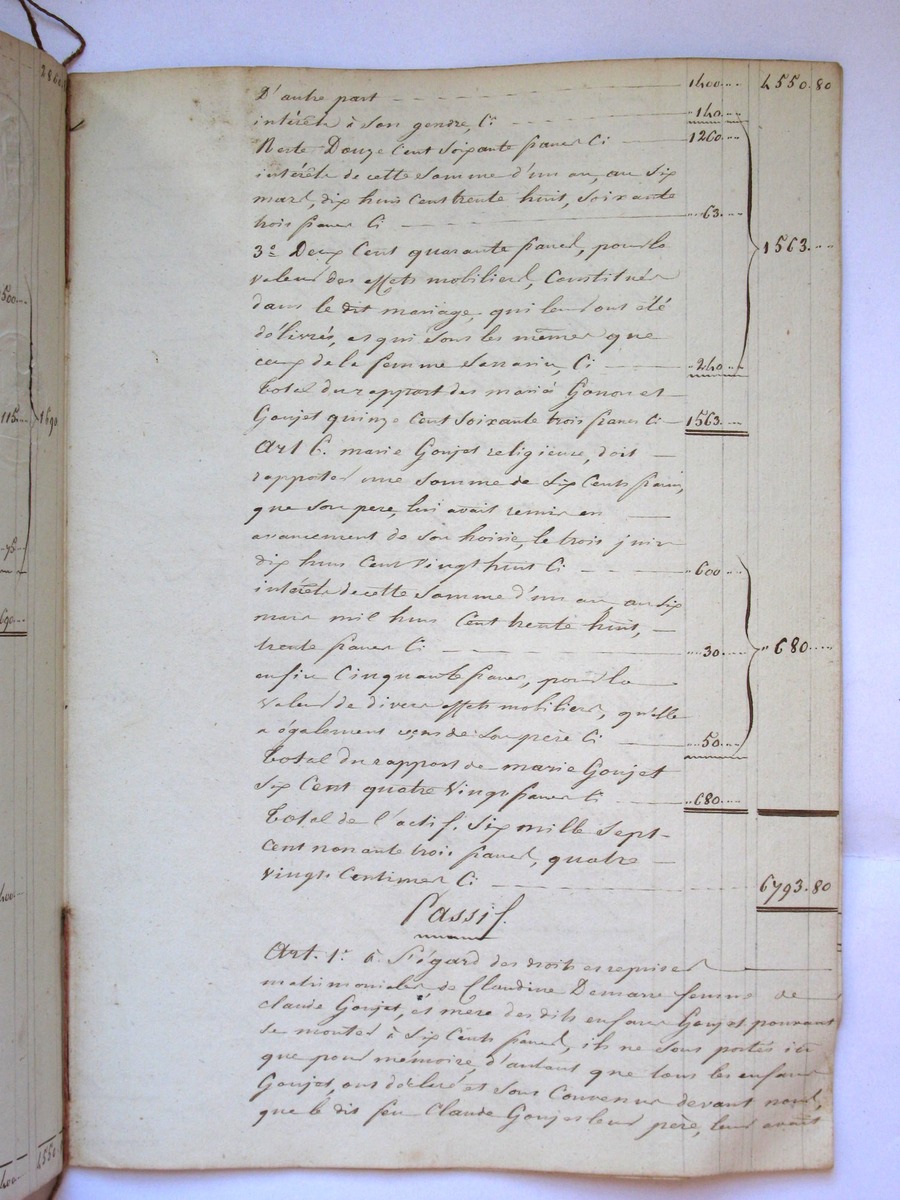 2860
D'autre part 1400 4550.80
intérêts à son gendre, Ci 140
Reste Douze Cent Soixante francs Ci 1260
intérêts de cette Somme d'un an, au Six
mars, dix huit Cent trente huit, Soixante
trois francs Ci 63
3º Deux Cent quarante francs, pour la 1563
valeur des effets mobiliers, Constitués
dans le dit mariage, qui leur ont été
délivrés, et qui Sont les mêmes que
ceux de la femme Ci 240
Total du rapport des mariés Gonon et
Goujet quinze Cent Soixante trois francs Ci 1563
Art 6. marie Goujet religieuse, doit
rapporter une Somme de Six Cents francs,
que Son pere, lui avait remis en
avancement de Son hoirie, le trois juin
dix huit Cent Vingt huit Ci 600
intérêts de cette Somme d'un an, au Six
mars mil huit Cent trente huit,
trente francs Ci 30 680
enfin Cinquante francs, pour la
Valeur de divers effets mobiliers, qu'elle
a également reçus de Son père Ci 50
Total du rapport de marie Goujet
Six Cent quatre Vingt francs Ci 680
Total de l'actif, Six mille Sept
Cent nonante trois francs, quatre
vingt Centimes Ci 6793.80
Passif.
Art. 1er à l'égard des droits et reprises
matrimoniales de Claudine Demarre femme de
Claude Goujet, et mère des dits enfans Goujet pouvant
se monter à Six Cents francs, ils ne Sont portés ici
que pour mémoire, d'autant que tous les enfans
Goujet, ont déclaré et Sont Convenus devant nous,
que le dit feu Claude Goujet leur père, leur avait